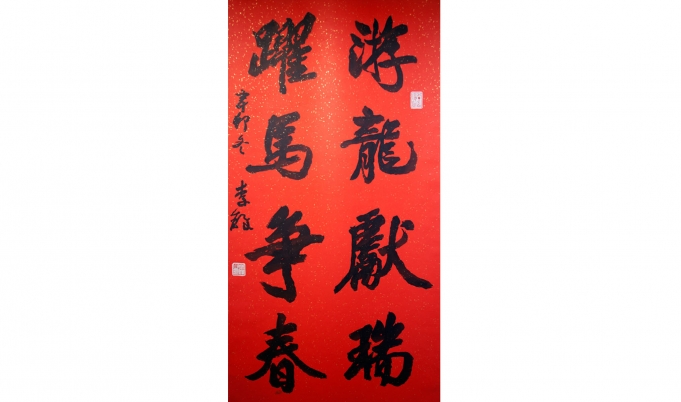 游龍獻瑞
躍馬爭春
辛卯冬 李雄